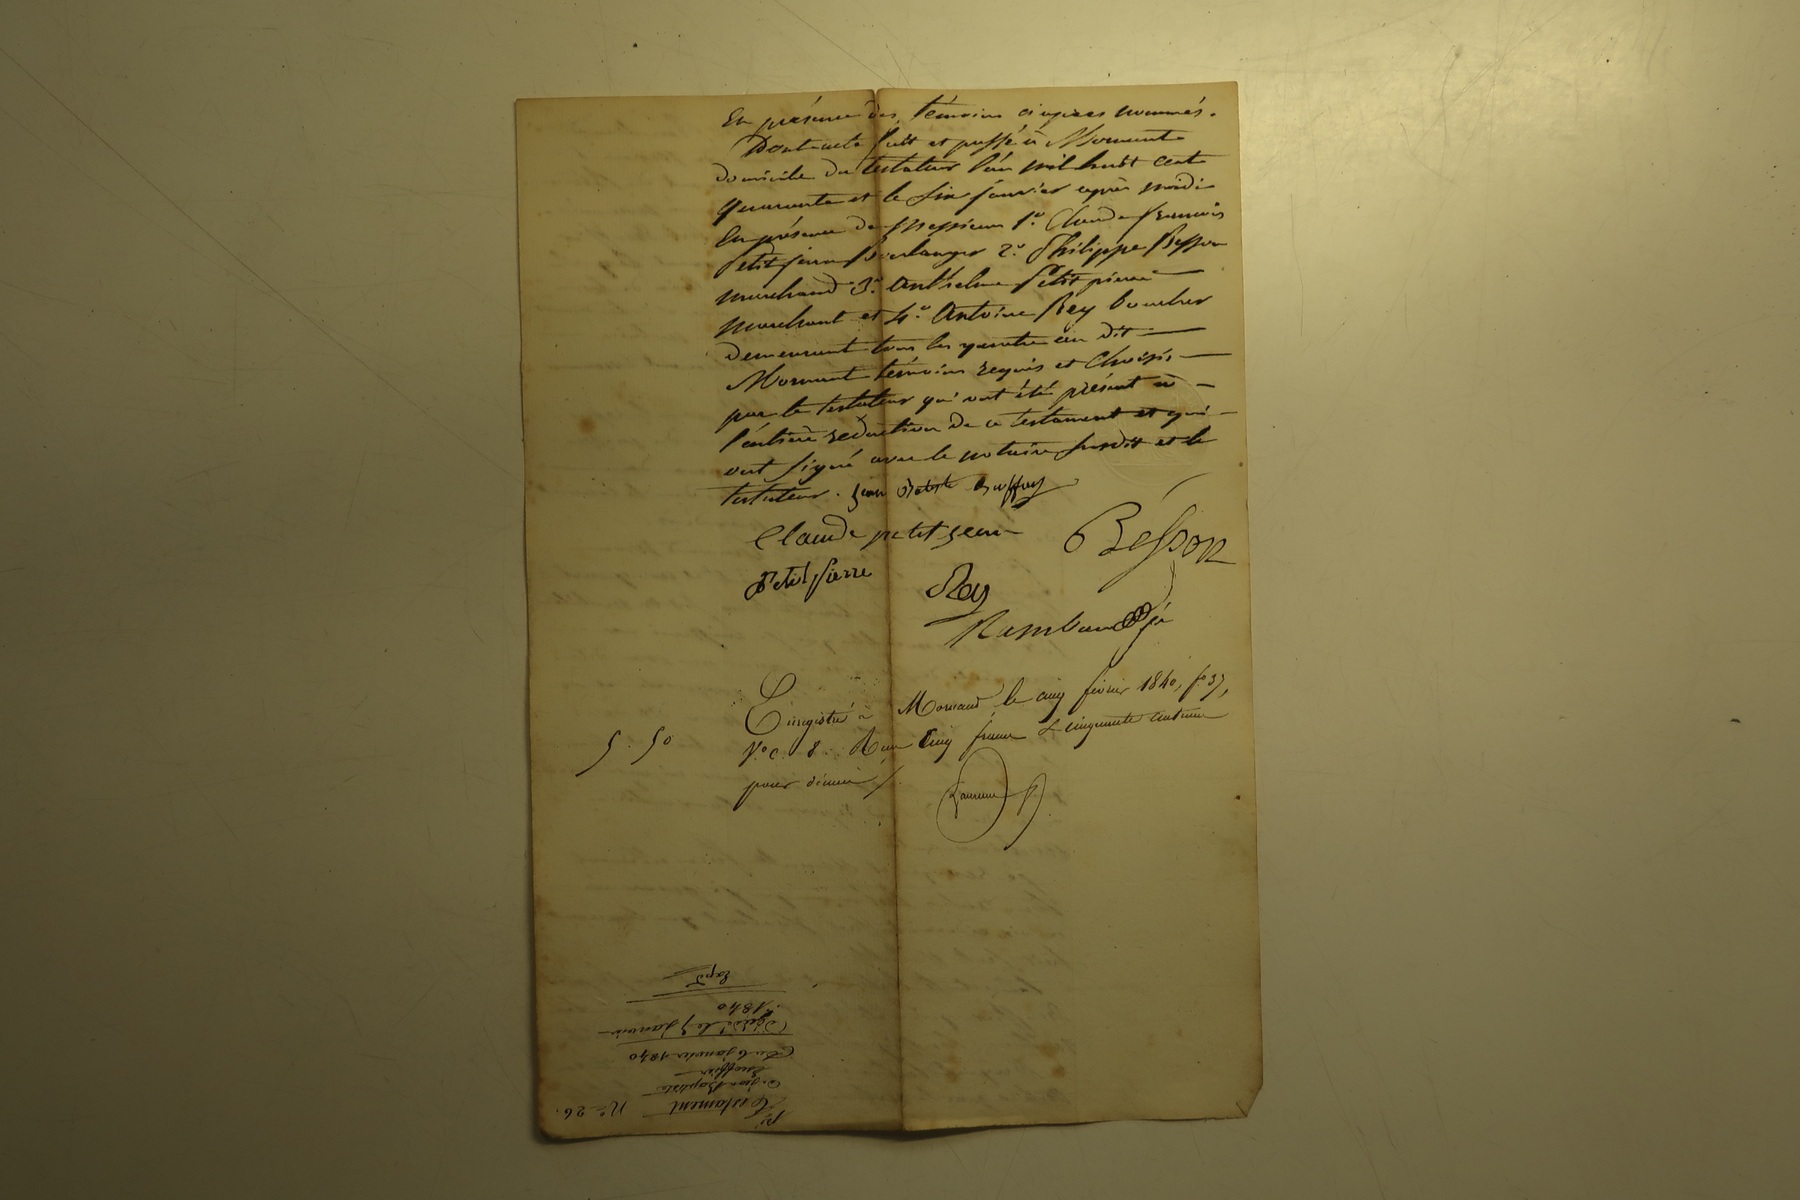 En présence des témoins ci après nommés.
Dont acte fait et passé à Mornant
domicile du testateur l'an mil huit cent
quarante et le six janvier après midi
En présence de Messieurs 1.° Claude François
Petitjean Boulanger 2.° Philippe Besson
marchand 3.° Anthelme Petitpierre
marchant et 4.° Antoine Rey boucher
demeurant tous les quatre au dit
Mornant témoins requis et choisis
par le testateur qui ont été présent à
l'entière rédaction de ce testament et qui
ont signé avec le notaire susdit et le
testateur. Jean Batiste
Claude petit Jean
Besson
Petit pierre
Rey
Enregistré à Mornant le cinq février 1840, f° 37,
V.° c. 8. Reçu Cinq francs & cinquante centimes
pour décime
5. 50
Testament N° 26.
Jean Baptiste
Du 6 janvier 1840
Décédé le 7 Janvier
1840
Expd.